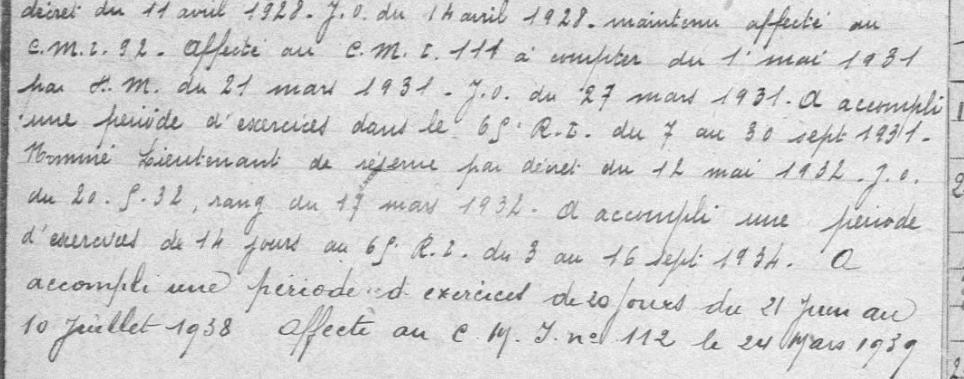 décret du 11 avril 1928. J.O. du 14 avril 1928. maintenu affecté au
C.M.I. 92. Affecté au C.M.I. 111 à compter du 1er mai 1931
par H.M. du 21 mars 1931. J.O. du 27 mars 1931. A accompli
une période d'exercices dans le 65e R.I. du 7 au 30 sept 1931.
Nommé Lieutenant de réserve par décret du 12 mai 1932. J.O.
du 20.5.32, rang du 17 mars 1932. A accompli une période
d'exercices de 14 jours au 65e R.I. du 3 au 16 sept 1934. A
accompli une période d'exercices de 20 jours du 21 Juin au
10 Juillet 1938 Affecté au C.M.I. no 112 le 24 Mars 1939